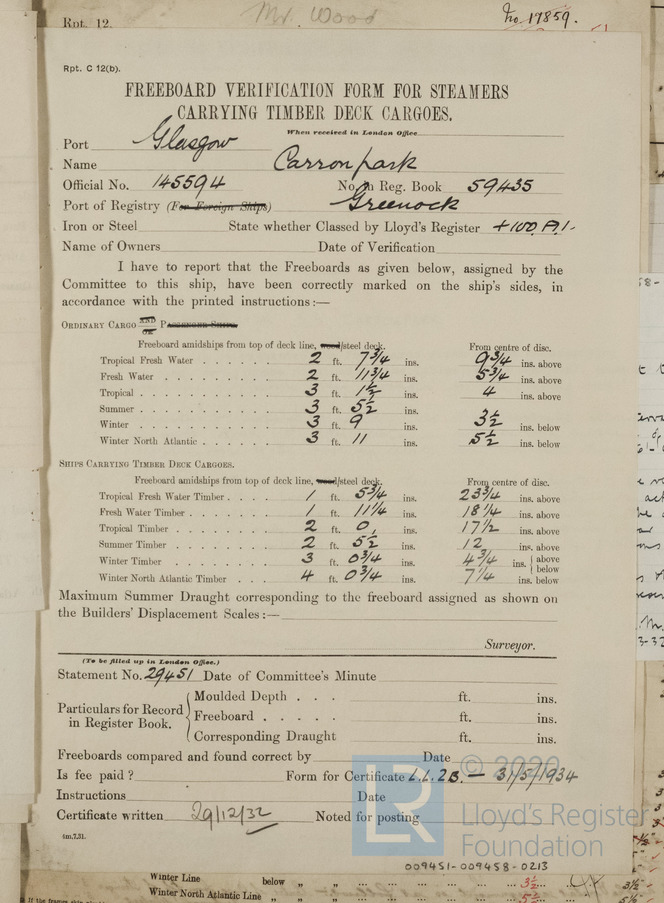 Rpt. 12.
Mr. Wood
No. 17859.
Rpt. C 12(b).
FREEBOARD VERIFICATION FORM FOR STEAMERS
CARRYING TIMBER DECK CARGOES.
When received in London Office
Port Glasgow
Name Carronpark
Official No. 145594 No. in Reg. Book 59435
Port of Registry (For Foreign Ships) Greenock
Iron or Steel State whether Classed by Lloyd's Register +100.A.1.
Name of Owners Date of Verification
I have to report that the Freeboards as given below, assigned by the
Committee to this ship, have been correctly marked on the ship's sides, in
accordance with the printed instructions:—
ORDINARY CARGO AND OR PASSENGER SHIPS
Freeboard amidships from top of deck line, wood/steel deck. From centre of disc.
Tropical Fresh Water 2 ft. 7 3/4 ins. 9 3/4 ins. above
Fresh Water 2 ft. 11 3/4 ins. 5 3/4 ins. above
Tropical 3 ft. 1 1/2 ins. 4 ins. above
Summer 3 ft. 5 1/2 ins.
Winter 3 ft. 9 ins. 3 1/2 ins. below
Winter North Atlantic 3 ft. 11 ins. 5 1/2 ins. below
SHIPS CARRYING TIMBER DECK CARGOES.
Freeboard amidships from top of deck line, wood/steel deck. From centre of disc.
Tropical Fresh Water Timber 1 ft. 5 3/4 ins. 23 3/4 ins. above
Fresh Water Timber 1 ft. 11 1/4 ins. 18 1/4 ins. above
Tropical Timber 2 ft. 0 ins. 17 1/2 ins. above
Summer Timber 2 ft. 5 1/2 ins. 12 ins. above
Winter Timber 3 ft. 0 3/4 ins. 4 3/4 ins. above below
Winter North Atlantic Timber 4 ft. 0 3/4 ins. 7 1/4 ins. below
Maximum Summer Draught corresponding to the freeboard assigned as shown on
the Builders' Displacement Scales:—
Surveyor.
(To be filled up in London Office.)
Statement No. 29451 Date of Committee's Minute
Particulars for Record in Register Book.
Moulded Depth . . . ft. ins.
Freeboard . . . . . ft. ins.
Corresponding Draught ft. ins.
Freeboards compared and found correct by Date
Is fee paid? Form for Certificate L.L.2B. — 31/5/1934
Instructions Date
Certificate written 29/12/32 Noted for posting
LR
© 2020
Lloyd's Register
Foundation
009451-009458-0213
Winter Line below „ „ 3½
Winter North Atlantic Line „ „ „ 5½